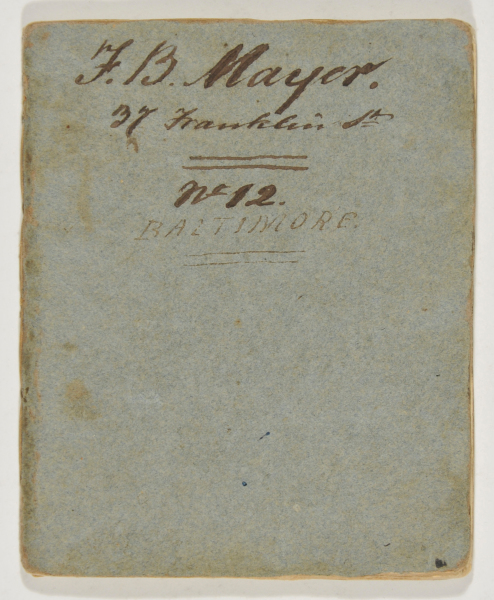 F. B. Mayer.
37 Franklin St
No 12.
BALTIMORE.